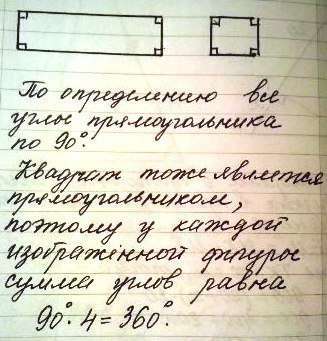 По определению все
углы прямоугольника
по 90°.
Квадрат тоже является
прямоугольником,
поэтому у каждой
изображённой фигуры
сумма углов равна
90° · 4 = 360°.